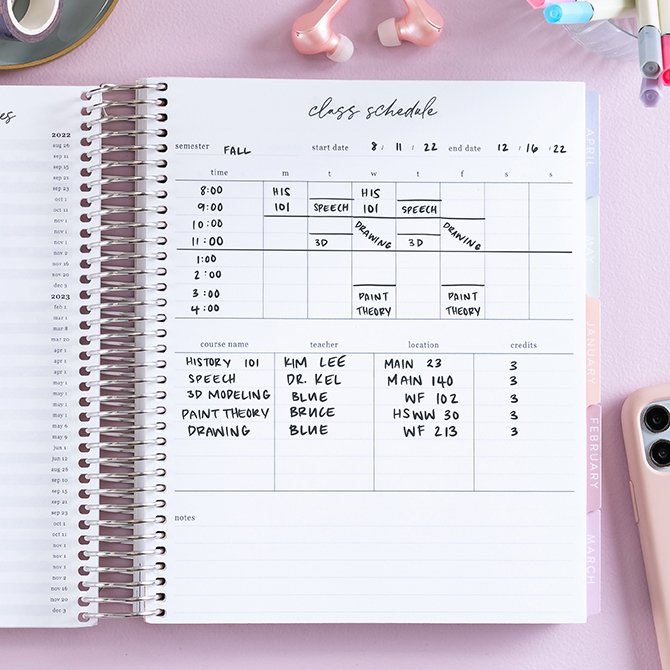 es
class schedule
semester FALL start date 8 / 11 / 22 end date 12 / 16 / 22
time m t w t f s s
8:00 HIS HIS
9:00 101 SPEECH 101 SPEECH
10:00 DRAWING DRAWING
11:00 3D 3D
1:00
2:00
3:00 PAINT PAINT
4:00 THEORY THEORY
course name teacher location credits
HISTORY 101 KIM LEE MAIN 23 3
SPEECH DR. KEL MAIN 140 3
3D MODELING BLUE WF 102 3
PAINT THEORY BRUCE HSWW 30 3
DRAWING BLUE WF 213 3
notes
2022
aug 26
sep 11
sep 15
sep 21
sep 23
oct 1
oct 11
nov 1
nov 1
nov 2
nov 16
nov 20
dec 3
2023
feb 1
mar 1
mar 8
mar 20
apr 1
apr 1
apr 1
may 6
may 9
jun 1
jun 12
aug 26
sep 10
sep 15
sep 21
sep 23
oct 1
oct 11
nov 1
nov 1
nov 2
nov 16
nov 20
dec 3
APRIL
MAY
JANUARY
FEBRUARY
MARCH